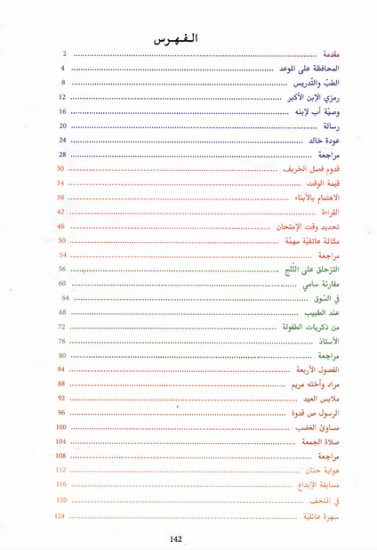 الفهرس
مقدمة 2
المحافظة على الموعد 4
الطبّ والتّدريس 8
رمزي الإبن الأكبر 12
وصيّة أب لإبنه 16
رسالة 20
عودة خالد 24
مراجعة 28
قدوم فصل الخريف 30
قيمة الوقت 34
الاهتمام بالأبناء 38
القراءة 42
تحديد وقت الإمتحان 46
مكالمة هاتفيّة مهمّة 50
مراجعة 54
التزحلق على الثّلج 56
مقارنة سامي 60
في السّوق 64
عند الطبيب 68
من ذكريات الطفولة 72
الأستاذ 76
مراجعة 80
الفصول الأربعة 84
مراد وأخته مريم 88
ملابس العيد 92
الرسول ص قدوة 96
مساوئ الغضب 100
صلاة الجمعة 104
مراجعة 108
هواية حنان 112
مسابقة الإبداع 116
في المتحف 120
سهرة عائليّة 124
142